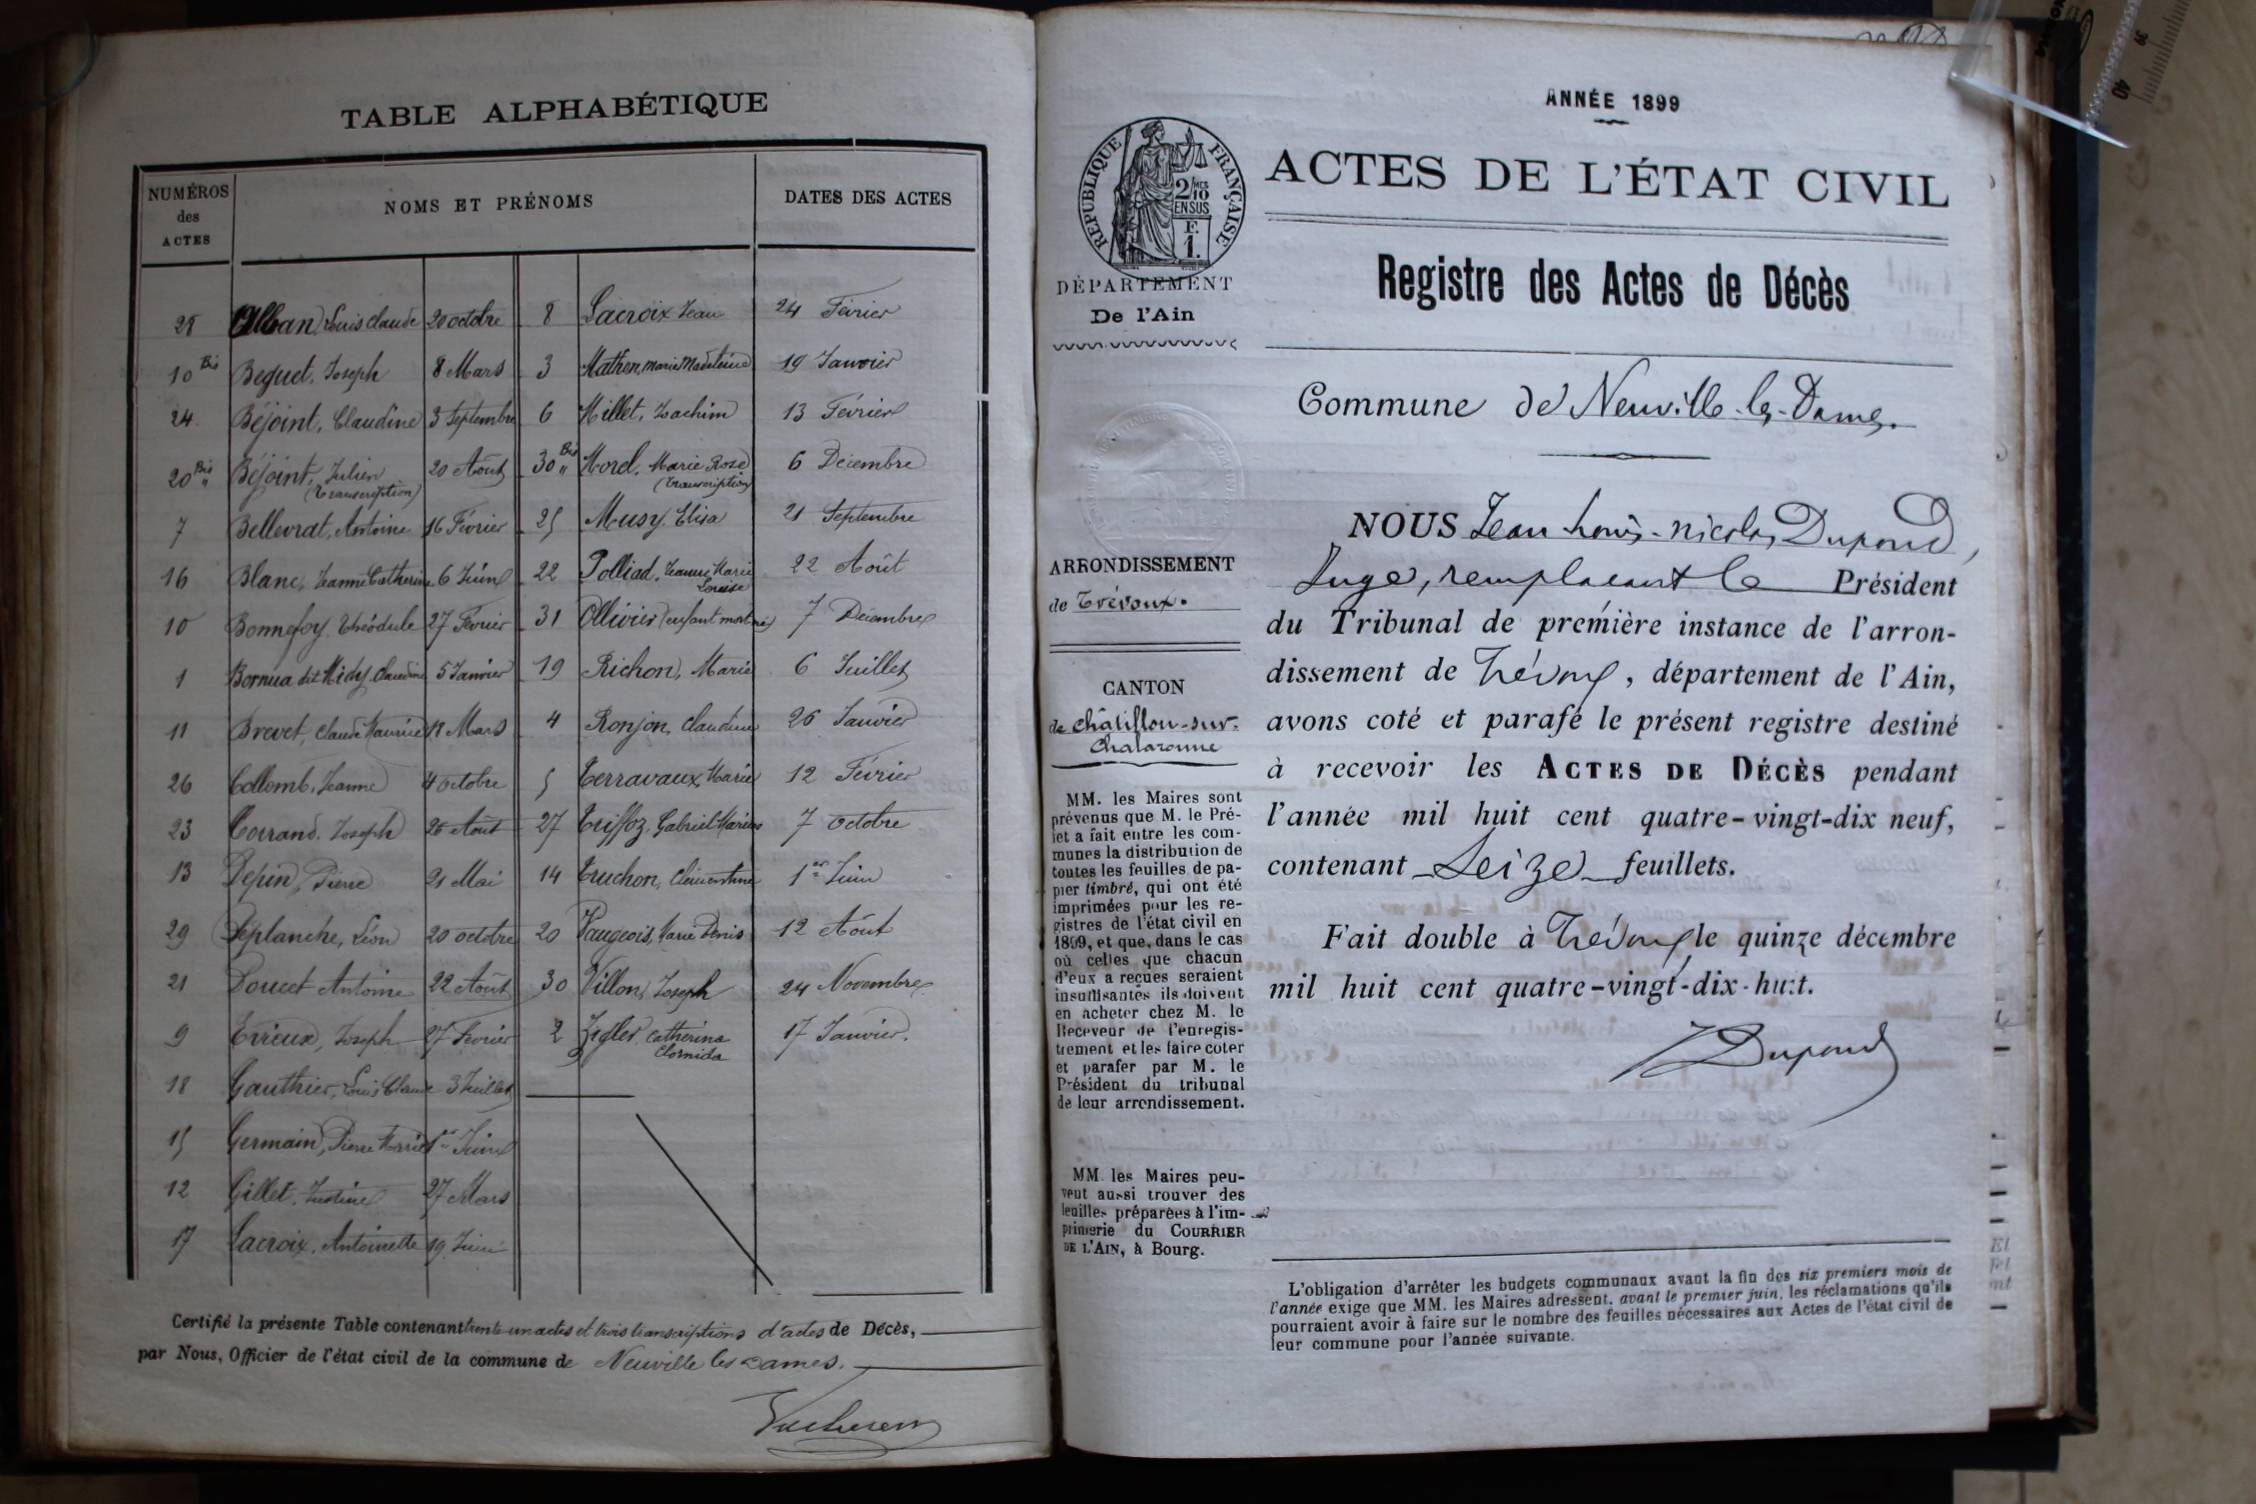 TABLE ALPHABÉTIQUE
NUMÉROS
des
ACTES
NOMS ET PRÉNOMS
DATES DES ACTES
28 Alban, Louis Claude 20 octobre
10 Bis Beguet, Joseph 8 Mars
24 Béjoint, Claudine 3 Septembre
20 Bis Béjoint, Julien 20 Août
(transcription)
7 Bellevrat, Antoine 16 Février
16 Blanc, Jeanne Catherine 6 Juin
10 Bonnefoy, Théodule 27 Février
1 Bornua dit Midy, Claudine 5 Janvier
11 Brevet, Claude Maurice 18 Mars
26 Collomb, Jeanne 4 octobre
23 Corrand, Joseph 26 Août
13 Depin, Pierre 21 Mai
29 Déplanche, Léon 20 octobre
21 Doucet Antoine 22 Août
9 Evieux, Joseph 27 Février
18 Gauthier, Louis Claude 3 Juillet
15 Germain, Pierre Marie 1er Juin
12 Gillet, Justine 27 Mars
17 Lacroix, Antoinette 19 Juin
8 Lacroix Jean 24 Février
3 Mathon, marie Madeleine 19 Janvier
6 Millet, Joachim 13 Février
30 Bis Morel, Marie Rose 6 Décembre
(transcription)
25 Musy, Elisa 21 Septembre
22 Polliad, Jeanne Marie 22 Août
Louise
31 Ollivier (enfant mort né) 7 Décembre
19 Richon, Marie 6 Juillet
4 Ronjon, Claudine 26 Janvier
5 Terravaux, Marie 12 Février
27 Triffoz, Gabriel Marius 7 octobre
14 Truchon, Clémentine 1er Juin
20 Vaugeois, Marie Denis 12 Août
30 Villon, Joseph 24 Novembre
2 Zigler, Catherine 17 Janvier.
Clornida
Certifié la présente Table contenant trente un actes et trois transcriptions d'actes de Décès,
par Nous, Officier de l'état civil de la commune de Neuville les Dames.
ANNÉE 1899
RÉPUBLIQUE FRANÇAISE
2/10 MES
EN SUS
F.
1.
ACTES DE L'ÉTAT CIVIL
DÉPARTEMENT
De l'Ain
Registre des Actes de Décès
Commune de Neuville-les-Dames.
ARRONDISSEMENT
de Trévoux.
CANTON
de Châtillon-sur-
Chalaronne
MM. les Maires sont
prévenus que M. le Pré-
fet a fait entre les com-
munes la distribution de
toutes les feuilles de pa-
pier timbré, qui ont été
imprimées pour les re-
gistres de l'état civil en
1899, et que, dans le cas
où celles que chacun
d'eux a reçues seraient
insuffisantes ils doivent
en acheter chez M. le
Receveur de l'enregis-
trement et les faire coter
et parafer par M. le
Président du tribunal
de leur arrondissement.
MM. les Maires peu-
vent aussi trouver des
feuilles préparées à l'im-
primerie du COURRIER
DE L'AIN, à Bourg.
NOUS Jean Louis-Nicolas Dupond,
Juge, remplaçant le Président
du Tribunal de première instance de l'arron-
dissement de Trévoux, département de l'Ain,
avons coté et parafé le présent registre destiné
à recevoir les ACTES DE DÉCÈS pendant
l'année mil huit cent quatre-vingt-dix neuf,
contenant Seize feuillets.
Fait double à Trévoux, le quinze décembre
mil huit cent quatre-vingt-dix-huit.
Dupond
L'obligation d'arrêter les budgets communaux avant la fin des six premiers mois de
l'année exige que MM. les Maires adressent, avant le premier juin, les réclamations qu'ils
pourraient avoir à faire sur le nombre des feuilles nécessaires aux Actes de l'état civil de
leur commune pour l'année suivante.
39
40